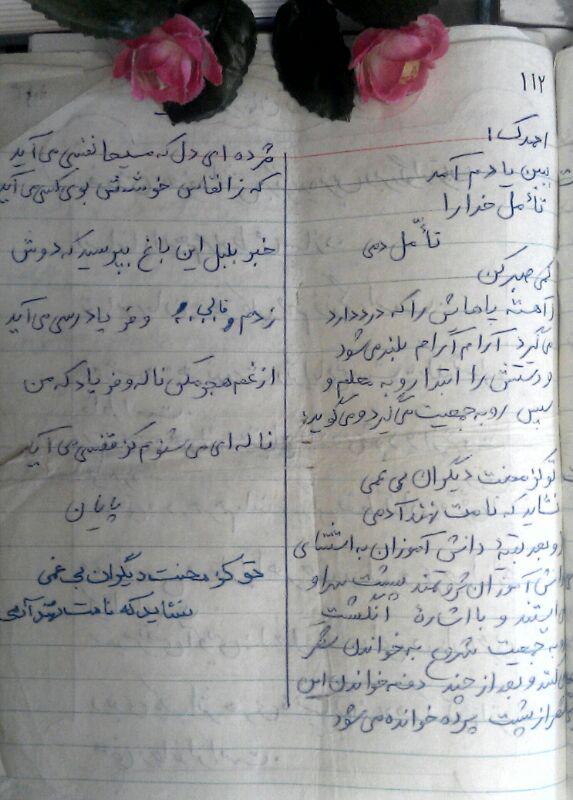 ۱۱۲
احمد کسا
ببین یادم آمد
تأمل خدا را
تأمّل دمی
کمی صبر کن
آهسته پاهاش را که درد دارد
می‌گیرد آرام آرام بلند می‌شود
و دستش را ابتدا رو به معلم و
سپس رو به جمعیت می‌گیرد و می‌گوید:
تو کز محنت دیگران بی غمی
نشاید که نامت نهند آدمی
و بعد بقیهٔ دانش آموزان به استثنای
دانش آموزان ثروتمند پشت سر او
می‌ایستند و با اشارهٔ انگشت
رو به جمعیت شروع به خواندن شعر
می‌کنند و بعد از چند دفعه خواندن این
شعر از پشت پرده خوانده می‌شود
مژده ای دل که مسیحا نفسی می آید
که ز انفاس خوشش بوی کسی می آید
خبر بلبل این باغ بپرسید که دوش
زدم و فالی و فریاد رسی می آید
از غم هجر مکن ناله و فریاد که من
ناله ای می شنوم کز قفسی می آید
پایان
تو کز محنت دیگران بی غمی
نشاید که نامت نهند آدمی